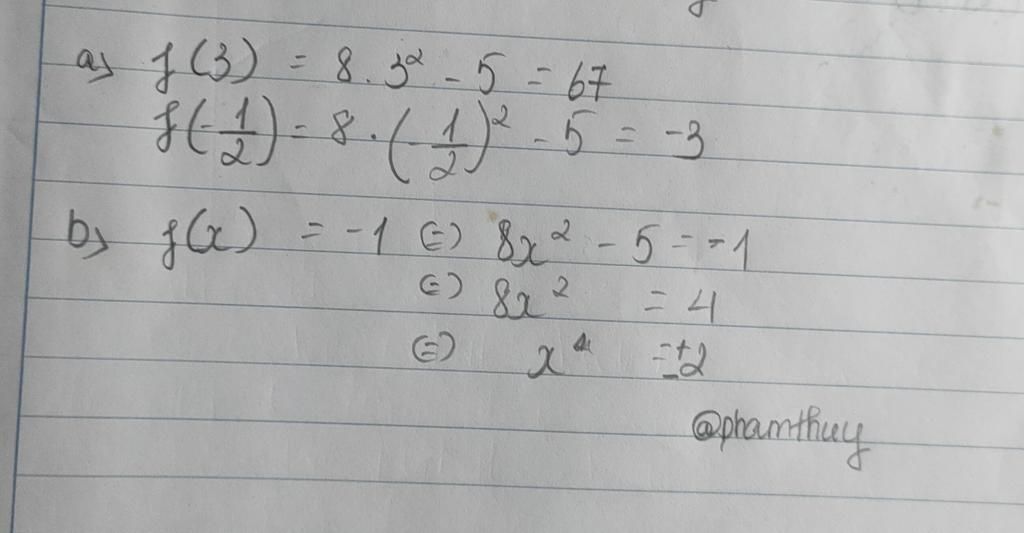 a) f(3) = 8 . 3² - 5 = 67
f(-1/2) = 8 . (-1/2)² - 5 = -3
b) f(x) = -1 (=) 8x² - 5 = -1
(=) 8x² = 4
(=) x = ±2
@phamthuy